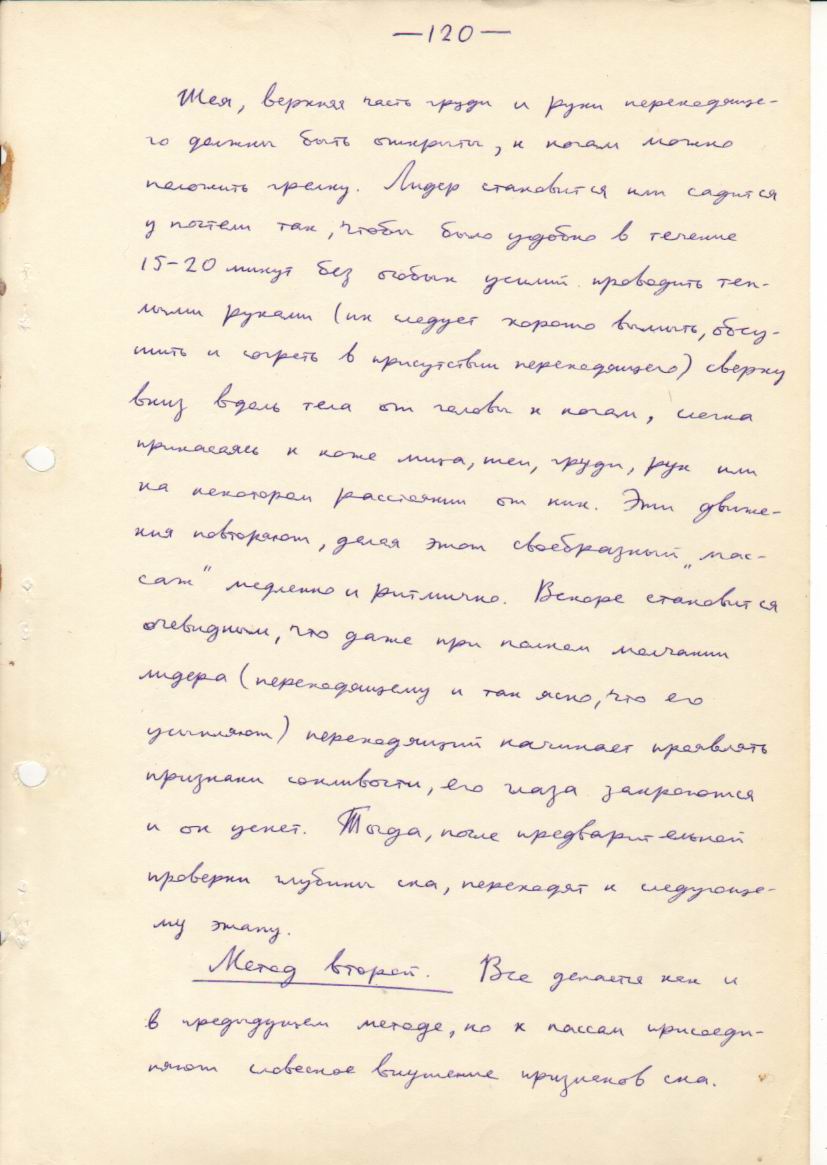 —120—
Шея, верхняя часть груди и руки переходяще-
го должны быть открыты, к ногам можно
положить грелку. Лидер становится или садится
у постели так, чтобы было удобно в течение
15-20 минут без особых усилий проводить теп-
лыми руками (их следует хорошо вымыть, обсу-
шить и согреть в присутствии переходящего) сверху
вниз вдоль тела от головы к ногам, слегка
прикасаясь к коже лица, шеи, груди, рук или
на некотором расстоянии от них. Эти движе-
ния повторяют, делая этот своеобразный „мас-
саж" медленно и ритмично. Вскоре становится
очевидным, что даже при полном молчании
лидера (переходящему и так ясно, что его
усыпляют) переходящий начинает проявлять
признаки сонливости, его глаза закроются
и он уснет. Тогда, после предварительной
проверки глубины сна, переходят к следующе-
му этапу.
Метод второй. Все делается как и
в предыдущем методе, но к пассам присоеди-
няют словесное внушение признаков сна.